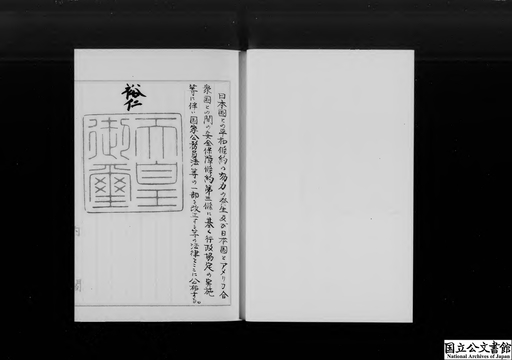 日本国との平和條約の効力の発生及び日本国とアメリカ合
衆国との間の安全保障條約第三條に基く行政協定の実施
等に伴い国家公務員法等の一部を改正する等の法律をここに公布する。
裕仁
天皇
御璽
内閣
国立公文書館
National Archives of Japan